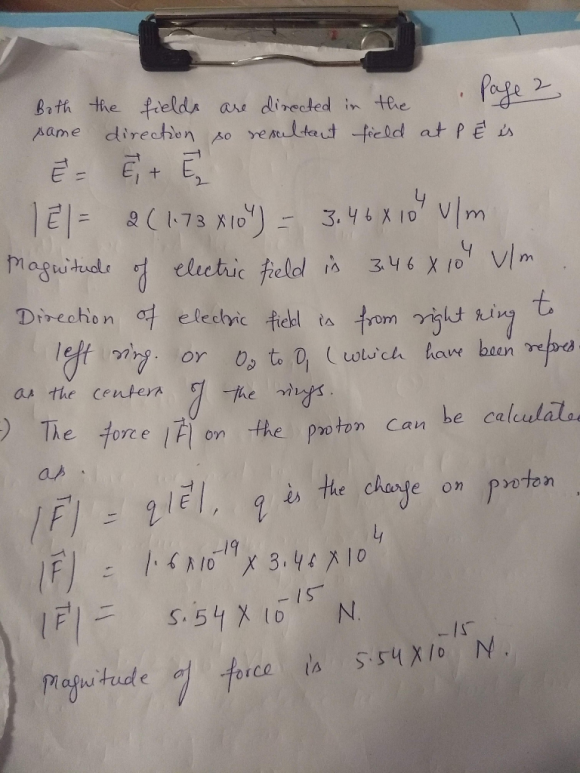 Page 2
Both the fields are directed in the
same direction so resultant field at P E⃗ is
E⃗ = E⃗₁ + E⃗₂
|E⃗| = 2 (1.73 X10⁴) = 3.46 X 10⁴ V/m
Magnitude of electric field is 3.46 X 10⁴ V/m
Direction of electric field is from right ring to
left ring. or O₂ to O₁ (which have been repres
as the centers of the rings.
) The force |F⃗| on the proton can be calculate
as.
|F⃗| = q|E⃗|, q is the charge on proton.
|F⃗| = 1.6 X 10⁻¹⁹ X 3.46 X 10⁴
|F⃗| = 5.54 X 10⁻¹⁵ N.
Magnitude of force is 5.54 X 10⁻¹⁵ N.